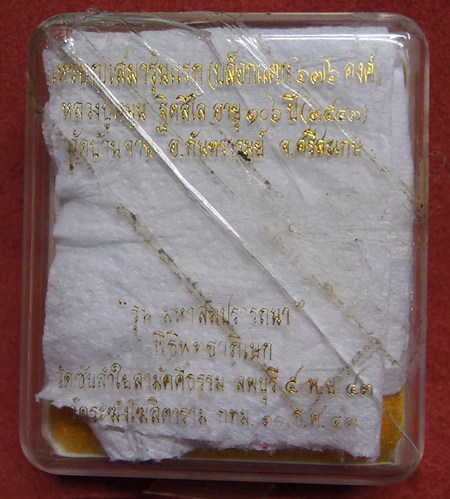 เหรียญเสมารุ่นแรก (บล็อกแตก ๖๗๖ องค์)
หลวงปู่หมุน ฐิตสีโล อายุ ๑๐๖ ปี (๒๕๔๓)
วัดบ้านจาน อ.กันทรารมย์ จ.ศรีสะเกษ
"รุ่น มหาสมปรารถนา"
พิธีพุทธาภิเษก
วัดซับลำใยสามัคคีธรรม ลพบุรี ๕ พ.ย. ๔๓
วัดระฆังโฆสิตาราม กทม. ธ.ค. ๔๓